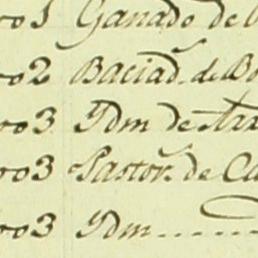 ro 1 Ganado de
ro 2 Baciad. de Bo
ro 3 Idm de
ro 3 Pastor. de Ca
ro 3 Idm......